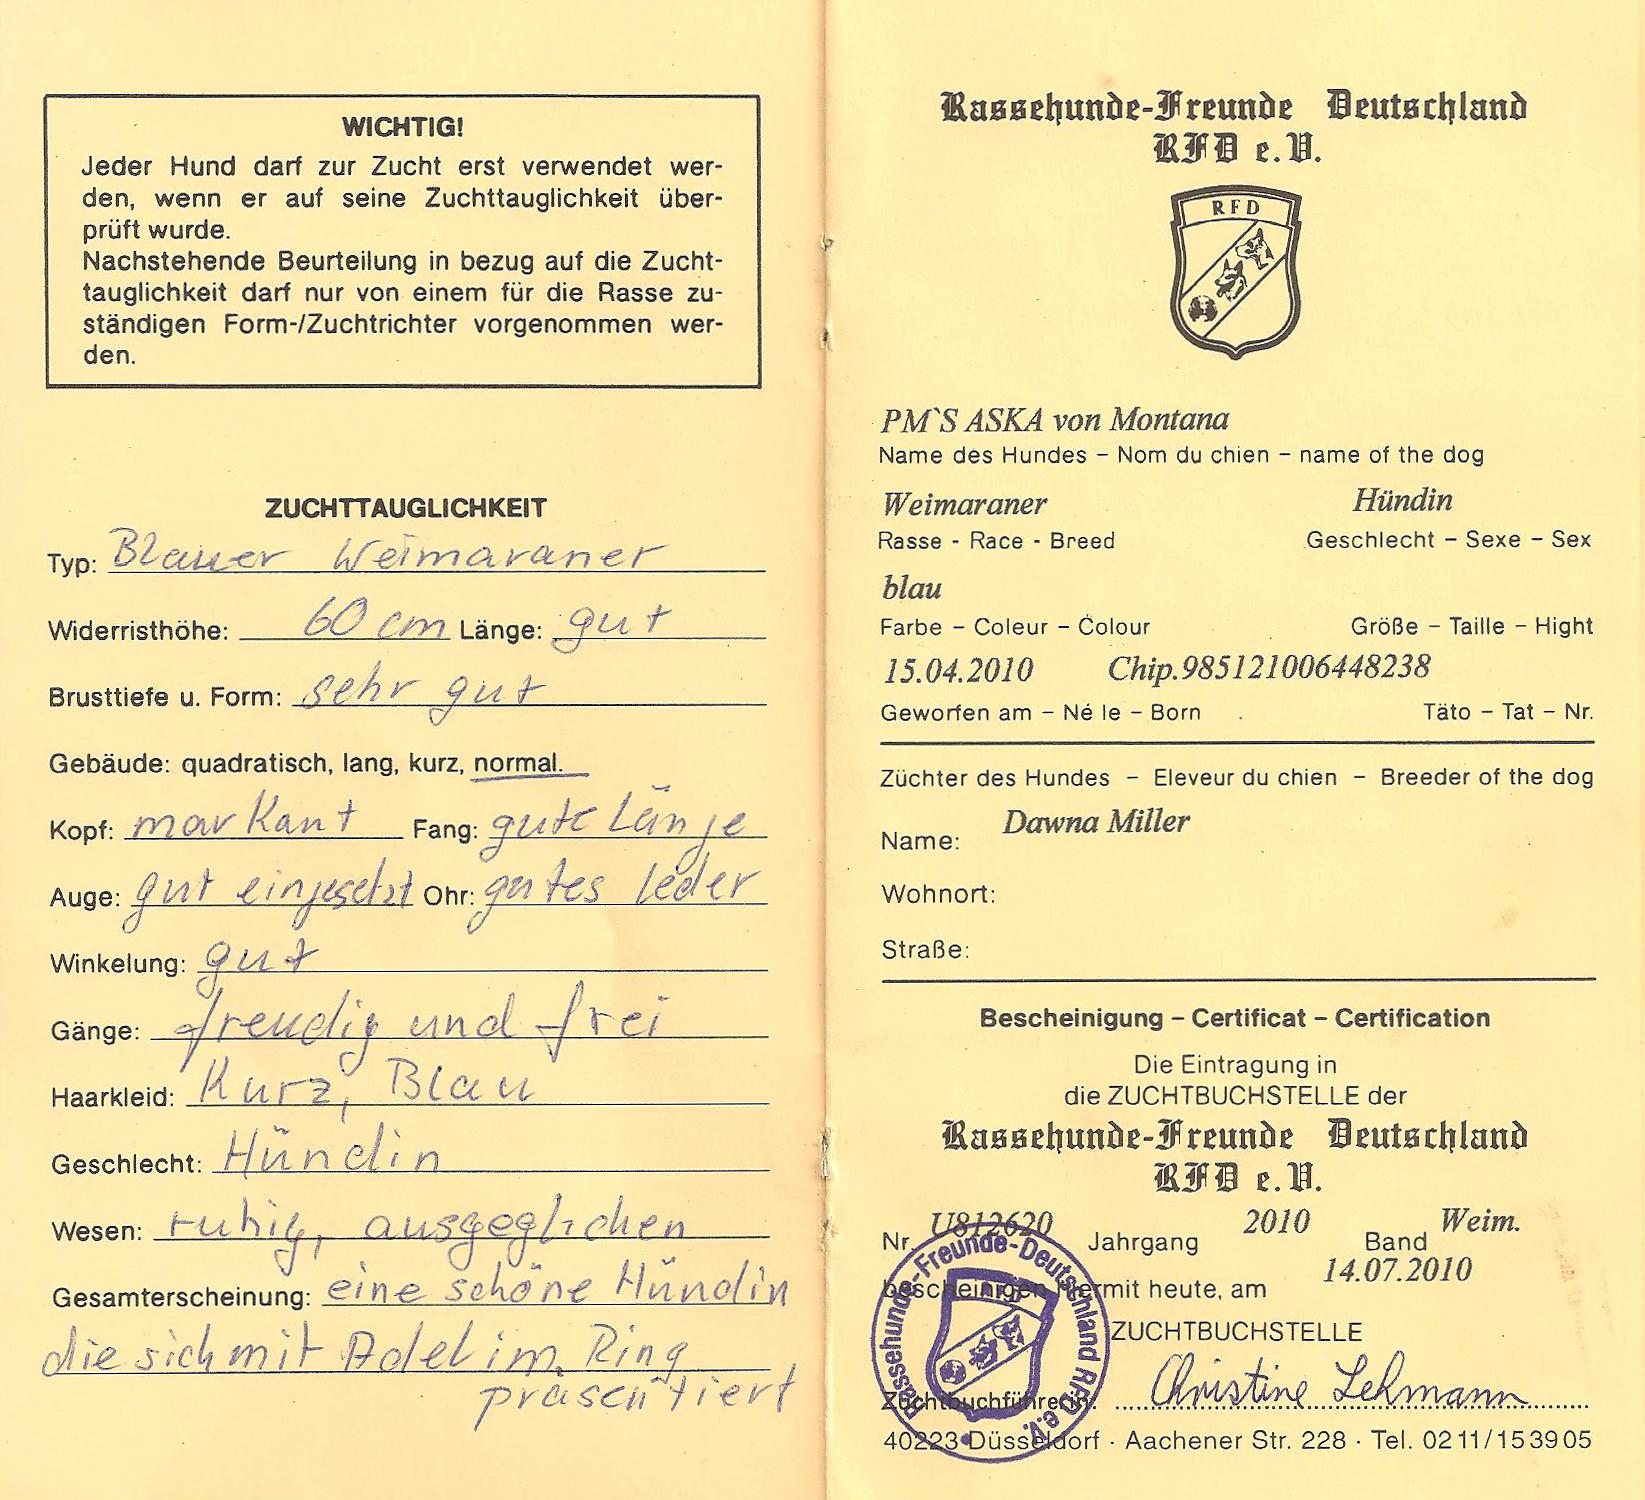 WICHTIG!
Jeder Hund darf zur Zucht erst verwendet wer-
den, wenn er auf seine Zuchttauglichkeit über-
prüft wurde.
Nachstehende Beurteilung in bezug auf die Zucht-
tauglichkeit darf nur von einem für die Rasse zu-
ständigen Form-/Zuchtrichter vorgenommen wer-
den.
ZUCHTTAUGLICHKEIT
Typ: Blauer Weimaraner
Widerristhöhe: 60 cm Länge: gut
Brusttiefe u. Form: sehr gut
Gebäude: quadratisch, lang, kurz, normal.
Kopf: markant Fang: gute Länge
Auge: gut eingesetzt Ohr: gutes leder
Winkelung: gut
Gänge: freudig und frei
Haarkleid: Kurz, Blau
Geschlecht: Hündin
Wesen: ruhig, ausgeglichen
Gesamterscheinung: eine schöne Hündin
die sich mit Adel im Ring
präsentiert
Rassehunde-Freunde Deutschland
RFD e.V.
RFD
PM`S ASKA von Montana
Name des Hundes – Nom du chien – name of the dog
Weimaraner Hündin
Rasse - Race - Breed Geschlecht – Sexe – Sex
blau
Farbe – Coleur – Colour Größe – Taille – Hight
15.04.2010 Chip.985121006448238
Geworfen am – Né le – Born Täto – Tat – Nr.
Züchter des Hundes – Eleveur du chien – Breeder of the dog
Dawna Miller
Name:
Wohnort:
Straße:
Bescheinigung – Certificat – Certification
Die Eintragung in
die ZUCHTBUCHSTELLE der
Rassehunde-Freunde Deutschland
RFD e.V.
U812620 2010 Weim.
Nr. Jahrgang Band
14.07.2010
bescheinigen hiermit heute, am
Rassehunde-Freunde-Deutschland RFD e.V.
ZUCHTBUCHSTELLE
Zuchtbuchführerin: Christine Lehmann
40223 Düsseldorf · Aachener Str. 228 · Tel. 0211/153905